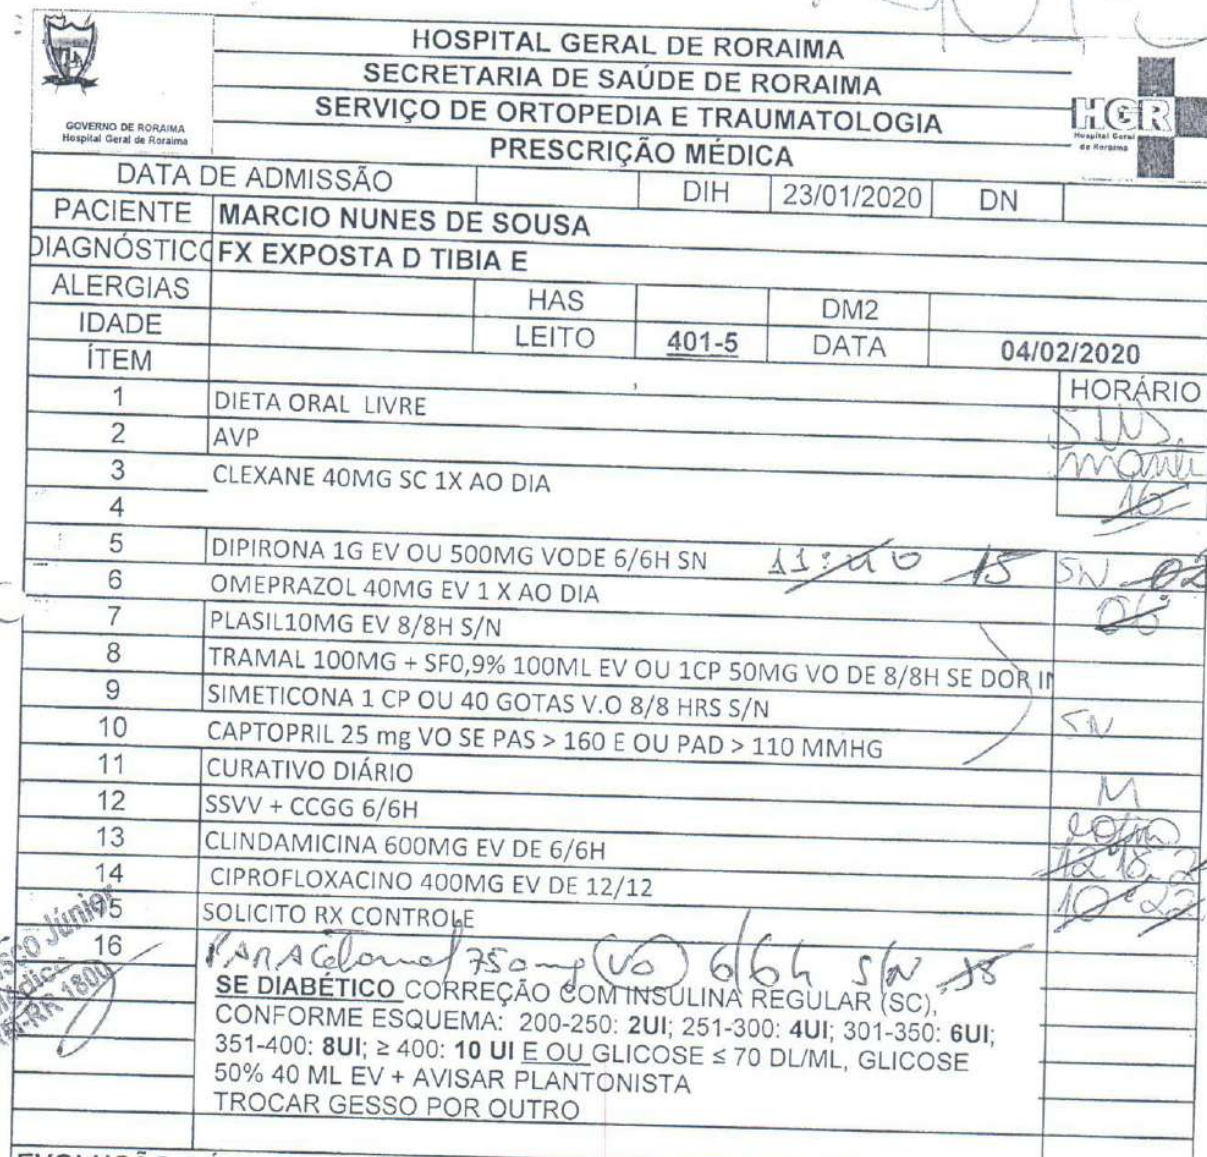 HOSPITAL GERAL DE RORAIMA
SECRETARIA DE SAÚDE DE RORAIMA
SERVIÇO DE ORTOPEDIA E TRAUMATOLOGIA
PRESCRIÇÃO MÉDICA
GOVERNO DE RORAIMA
Hospital Geral de Roraima
HGR
Hospital Geral
de Roraima
DATA DE ADMISSÃO DIH 23/01/2020 DN
PACIENTE MARCIO NUNES DE SOUSA
DIAGNÓSTICO FX EXPOSTA D TIBIA E
ALERGIAS HAS DM2
IDADE LEITO 401-5 DATA 04/02/2020
ÍTEM HORÁRIO
1 DIETA ORAL LIVRE
2 AVP
3 CLEXANE 40MG SC 1X AO DIA 16
4
5 DIPIRONA 1G EV OU 500MG VODE 6/6H SN 15 SN 02
6 OMEPRAZOL 40MG EV 1 X AO DIA 06
7 PLASIL10MG EV 8/8H S/N
8 TRAMAL 100MG + SF0,9% 100ML EV OU 1CP 50MG VO DE 8/8H SE DOR IN
9 SIMETICONA 1 CP OU 40 GOTAS V.O 8/8 HRS S/N SN
10 CAPTOPRIL 25 mg VO SE PAS > 160 E OU PAD > 110 MMHG
11 CURATIVO DIÁRIO M
12 SSVV + CCGG 6/6H
13 CLINDAMICINA 600MG EV DE 6/6H 12 18
14 CIPROFLOXACINO 400MG EV DE 12/12 10 22
15 SOLICITO RX CONTROLE
16 PARAcetamol 750mg (VO) 6/6h S/N 18
SE DIABÉTICO CORREÇÃO COM INSULINA REGULAR (SC),
CONFORME ESQUEMA: 200-250: 2UI; 251-300: 4UI; 301-350: 6UI;
351-400: 8UI; ≥ 400: 10 UI E OU GLICOSE ≤ 70 DL/ML, GLICOSE
50% 40 ML EV + AVISAR PLANTONISTA
TROCAR GESSO POR OUTRO